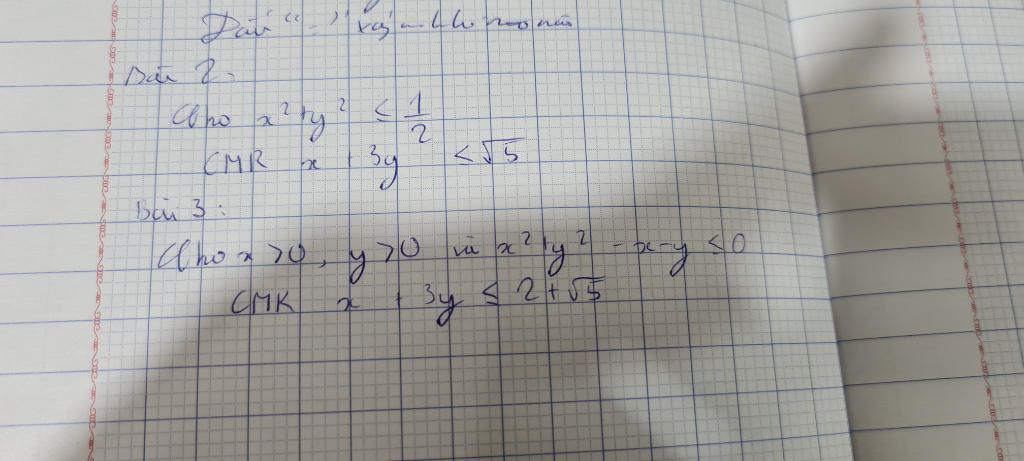 Dấu "="
Bài 2:
Cho x² + y² ≤ 1/2
CMR x + 3y ≤ √5
Bài 3:
Cho x > 0, y > 0 và x² + y² - x - y ≤ 0
CMR x + 3y ≤ 2 + √5